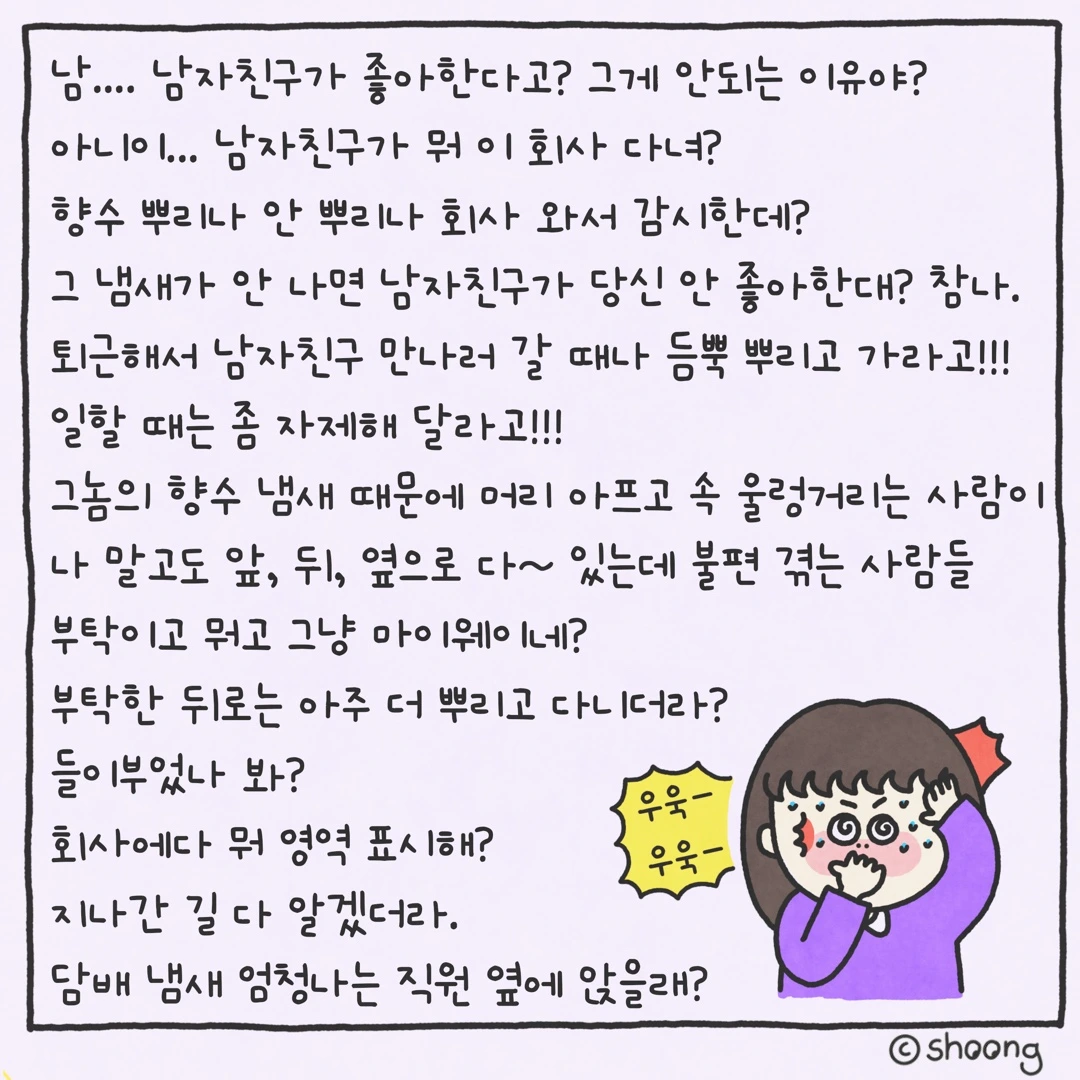 남.... 남자친구가 좋아한다고? 그게 안되는 이유야?
아니이... 남자친구가 뭐 이 회사 다녀?
향수 뿌리나 안 뿌리나 회사 와서 감시한데?
그 냄새가 안 나면 남자친구가 당신 안 좋아한대? 참나.
퇴근해서 남자친구 만나러 갈 때나 듬뿍 뿌리고 가라고!!!
일할 때는 좀 자제해 달라고!!!
그놈의 향수 냄새 때문에 머리 아프고 속 울렁거리는 사람이
나 말고도 앞, 뒤, 옆으로 다~ 있는데 불편 겪는 사람들
부탁이고 뭐고 그냥 마이웨이네?
부탁한 뒤로는 아주 더 뿌리고 다니더라?
들이부었나 봐?
회사에다 뭐 영역 표시해?
지나간 길 다 알겠더라.
담배 냄새 엄청나는 직원 옆에 앉을래?
우욱-
우욱-
©shoong